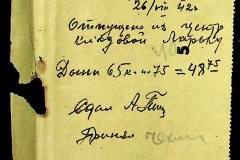 26/VIII 42г
Отпущено из центр
кладовой Ларьку
№ 5
Дыни 65 кг по 75 = 48 75
Сдал А.
Принял